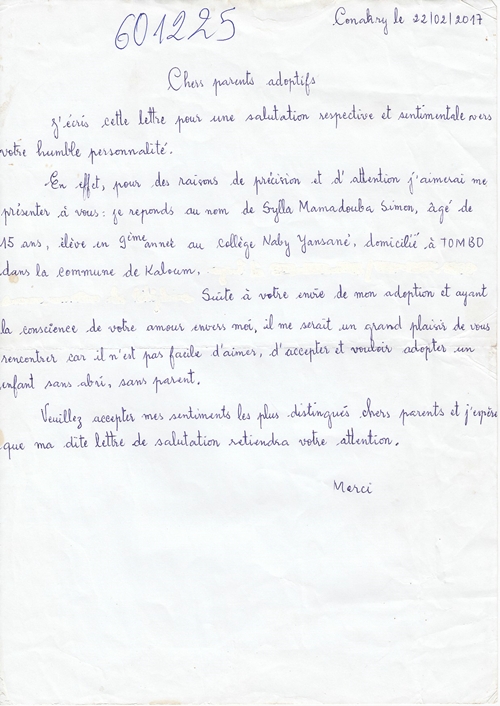 601225
Conakry le 22/02/2017
Chers parents adoptifs
J'écris cette lettre pour une salutation respective et sentimentale vers
votre humble personnalité.
En effet, pour des raisons de précision et d'attention j'aimerai me
présenter à vous : je reponds au nom de Sylla Mamadouba Simon, âgé de
15 ans, élève en 9ième année au collège Naby Yansané, domicilié à TOMBO
dans la commune de Kaloum.
Suite à votre envie de mon adoption et ayant
la conscience de votre amour envers moi, il me serait un grand plaisir de vous
rencontrer car il n'est pas facile d'aimer, d'accepter et vouloir adopter un
enfant sans abri, sans parent.
Veuillez accepter mes sentiments les plus distingués chers parents et j'espère
que ma dite lettre de salutation retiendra votre attention.
Merci